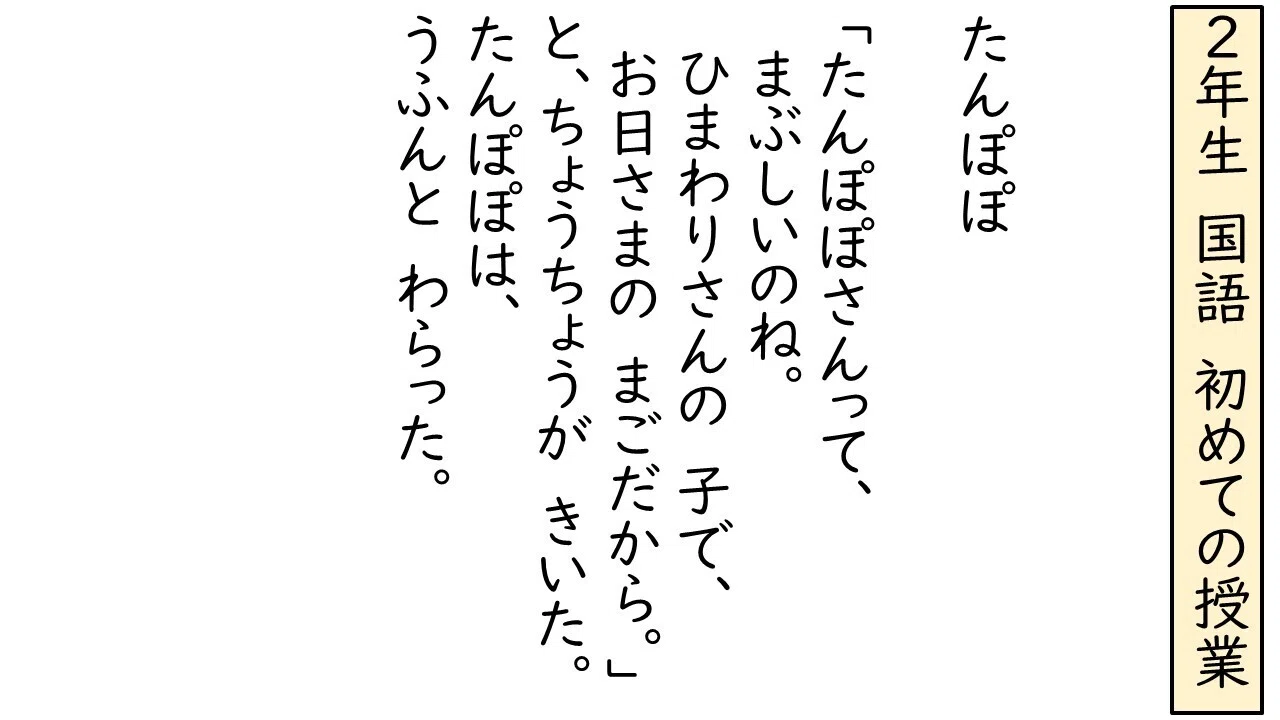 2年生 国語 初めての授業
たんぽぽ
「たんぽぽさんって、
まぶしいのね。
ひまわりさんの 子で、
お日さまの まごだから。」
と、ちょうちょうが きいた。
たんぽぽは、
うふんと わらった。